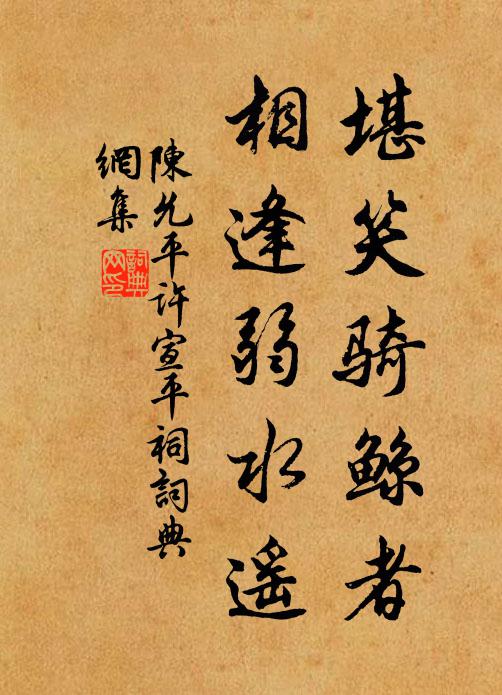 堪笑骑鲸者
相逢弱水遥
陳允平许宣平祠詞典
網集
詞典
网印